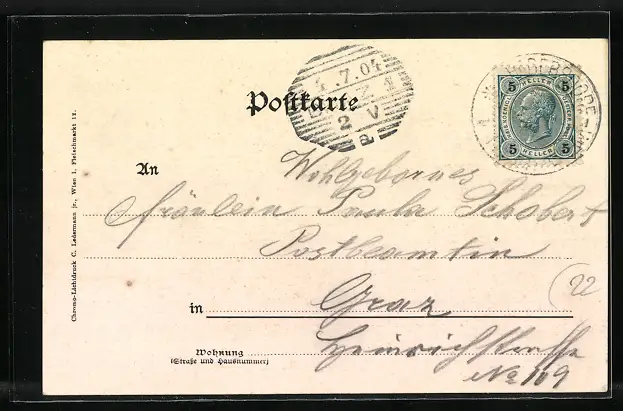 4.7.04
2 V
a
5 HELLER 5
5 HELLER 5
Postkarte
An
Wohlgebornes
Fräulein Paula Schobert
Postbeamtin
in Graz
Wohnung Heinrichstrasse
(Straße und Hausnummer)
No 109
22
Chromo-Lichtdruck C. Ledermann jr., Wien I, Fleischmarkt 12.